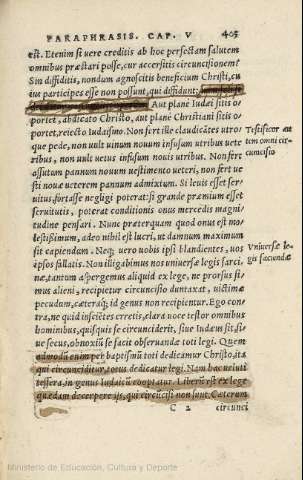 PARAPHRASIS. CAP. V 405
est. Etenim si vere creditis ab hoc perfectam salutem
omnibus præstari posse, cur accersitis circuncisionem?
Sin diffiditis, nondum agnoscitis beneficium Christi, cu
ius participes esse non possunt, qui diffidunt:
Aut plane Iudæi sitis o-
portet, abdicato Christo, aut plane Christiani sitis o-
portet, reiecto Iudaismo. Non fert ille claudicātes utro
que pede, non vult vinum nouum infusum utribus uete
ribus, non uult uetus infusum nouis utribus. Non fert
assutum pannum nouum uestimento ueteri, non fert ue
sti nouæ ueterem pannum admixtum. Si leuis esset ser
uitus, fortasse negligi poterat: si grande præmium esset
seruitutis, poterat conditionis onus mercedis magni
tudine pensari. Nunc præterquam quod onus est mo-
lestissimum, adeo nihil est lucri, ut damnum maximum
sit capiendum. Neq; uero uobis ipsi blandientes, uos
ipsos fallatis. Non illigabimus nos uniuersæ legis sarci-
næ, tantum aspergemus aliquid ex lege, ne prorsus si-
mus alieni, recipietur circuncisio duntaxat, uictimæ
pecudum, cæteraq; id genus non recipientur. Ego con-
tra, ne quid insciētes erretis, clara uoce testor omnibus
hominibus, quisquis se circunciderit, siue Iudæus sit, si-
ue secus, obnoxiū se facit obseruandæ toti legi. Quem
admodū enim per baptismū toti dedicamur Christo, ita
qui circunciditur, totus dedicatur legi. Nam hac ueluti
tessera, in genus Iudaicū cooptatur. Liberū est ex lege
quædam decerpere ijs, qui circūcisi non sunt. Cæterum
C 2 circunci
Testificor au
tem omni cir-
cunciso
Vniuersæ le-
gis faciundæ
Ministerio de Educación, Cultura y Deporte